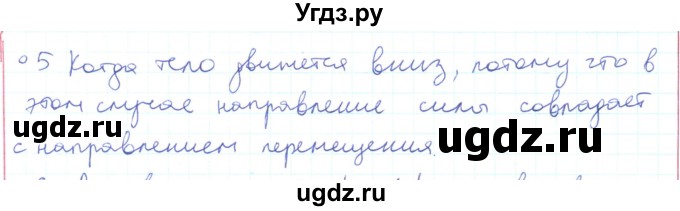 Угдз.ру
°5 Когда тело движется вниз, потому что в
этом случае направление силы совпадает
ugdz.ru ugdz.ru
с направлением перемещения.
ugdz.ru